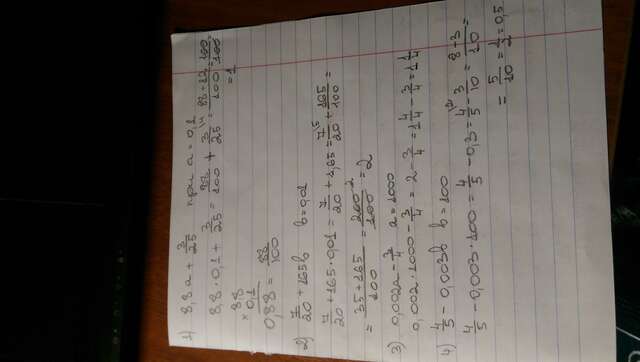 1) 8,8a + 3/25 при a = 0,1
8,8 · 0,1 + 3/25 = 88/100 + 3/25 \4 = 88+12/100 = 100/100 =
= 1
× 88
0,1
0,88 = 88/100
2) 7/20 + 165b b = 0,01
7/20 + 165 · 0,01 = 7/20 + 1,65 = 7/20 \5 + 165/100 =
= 35+165/100 = 200/100 = 2
3) 0,002a - 3/4 a = 1000
0,002 · 1000 - 3/4 = 2 - 3/4 = 1 4/4 - 3/4 = 1 1/4
4) 4/5 - 0,003b b = 100
4/5 - 0,003 · 100 = 4/5 - 0,3 = 4/5 \2 - 3/10 = 8-3/10 =
= 5/10 = 1/2 = 0,5